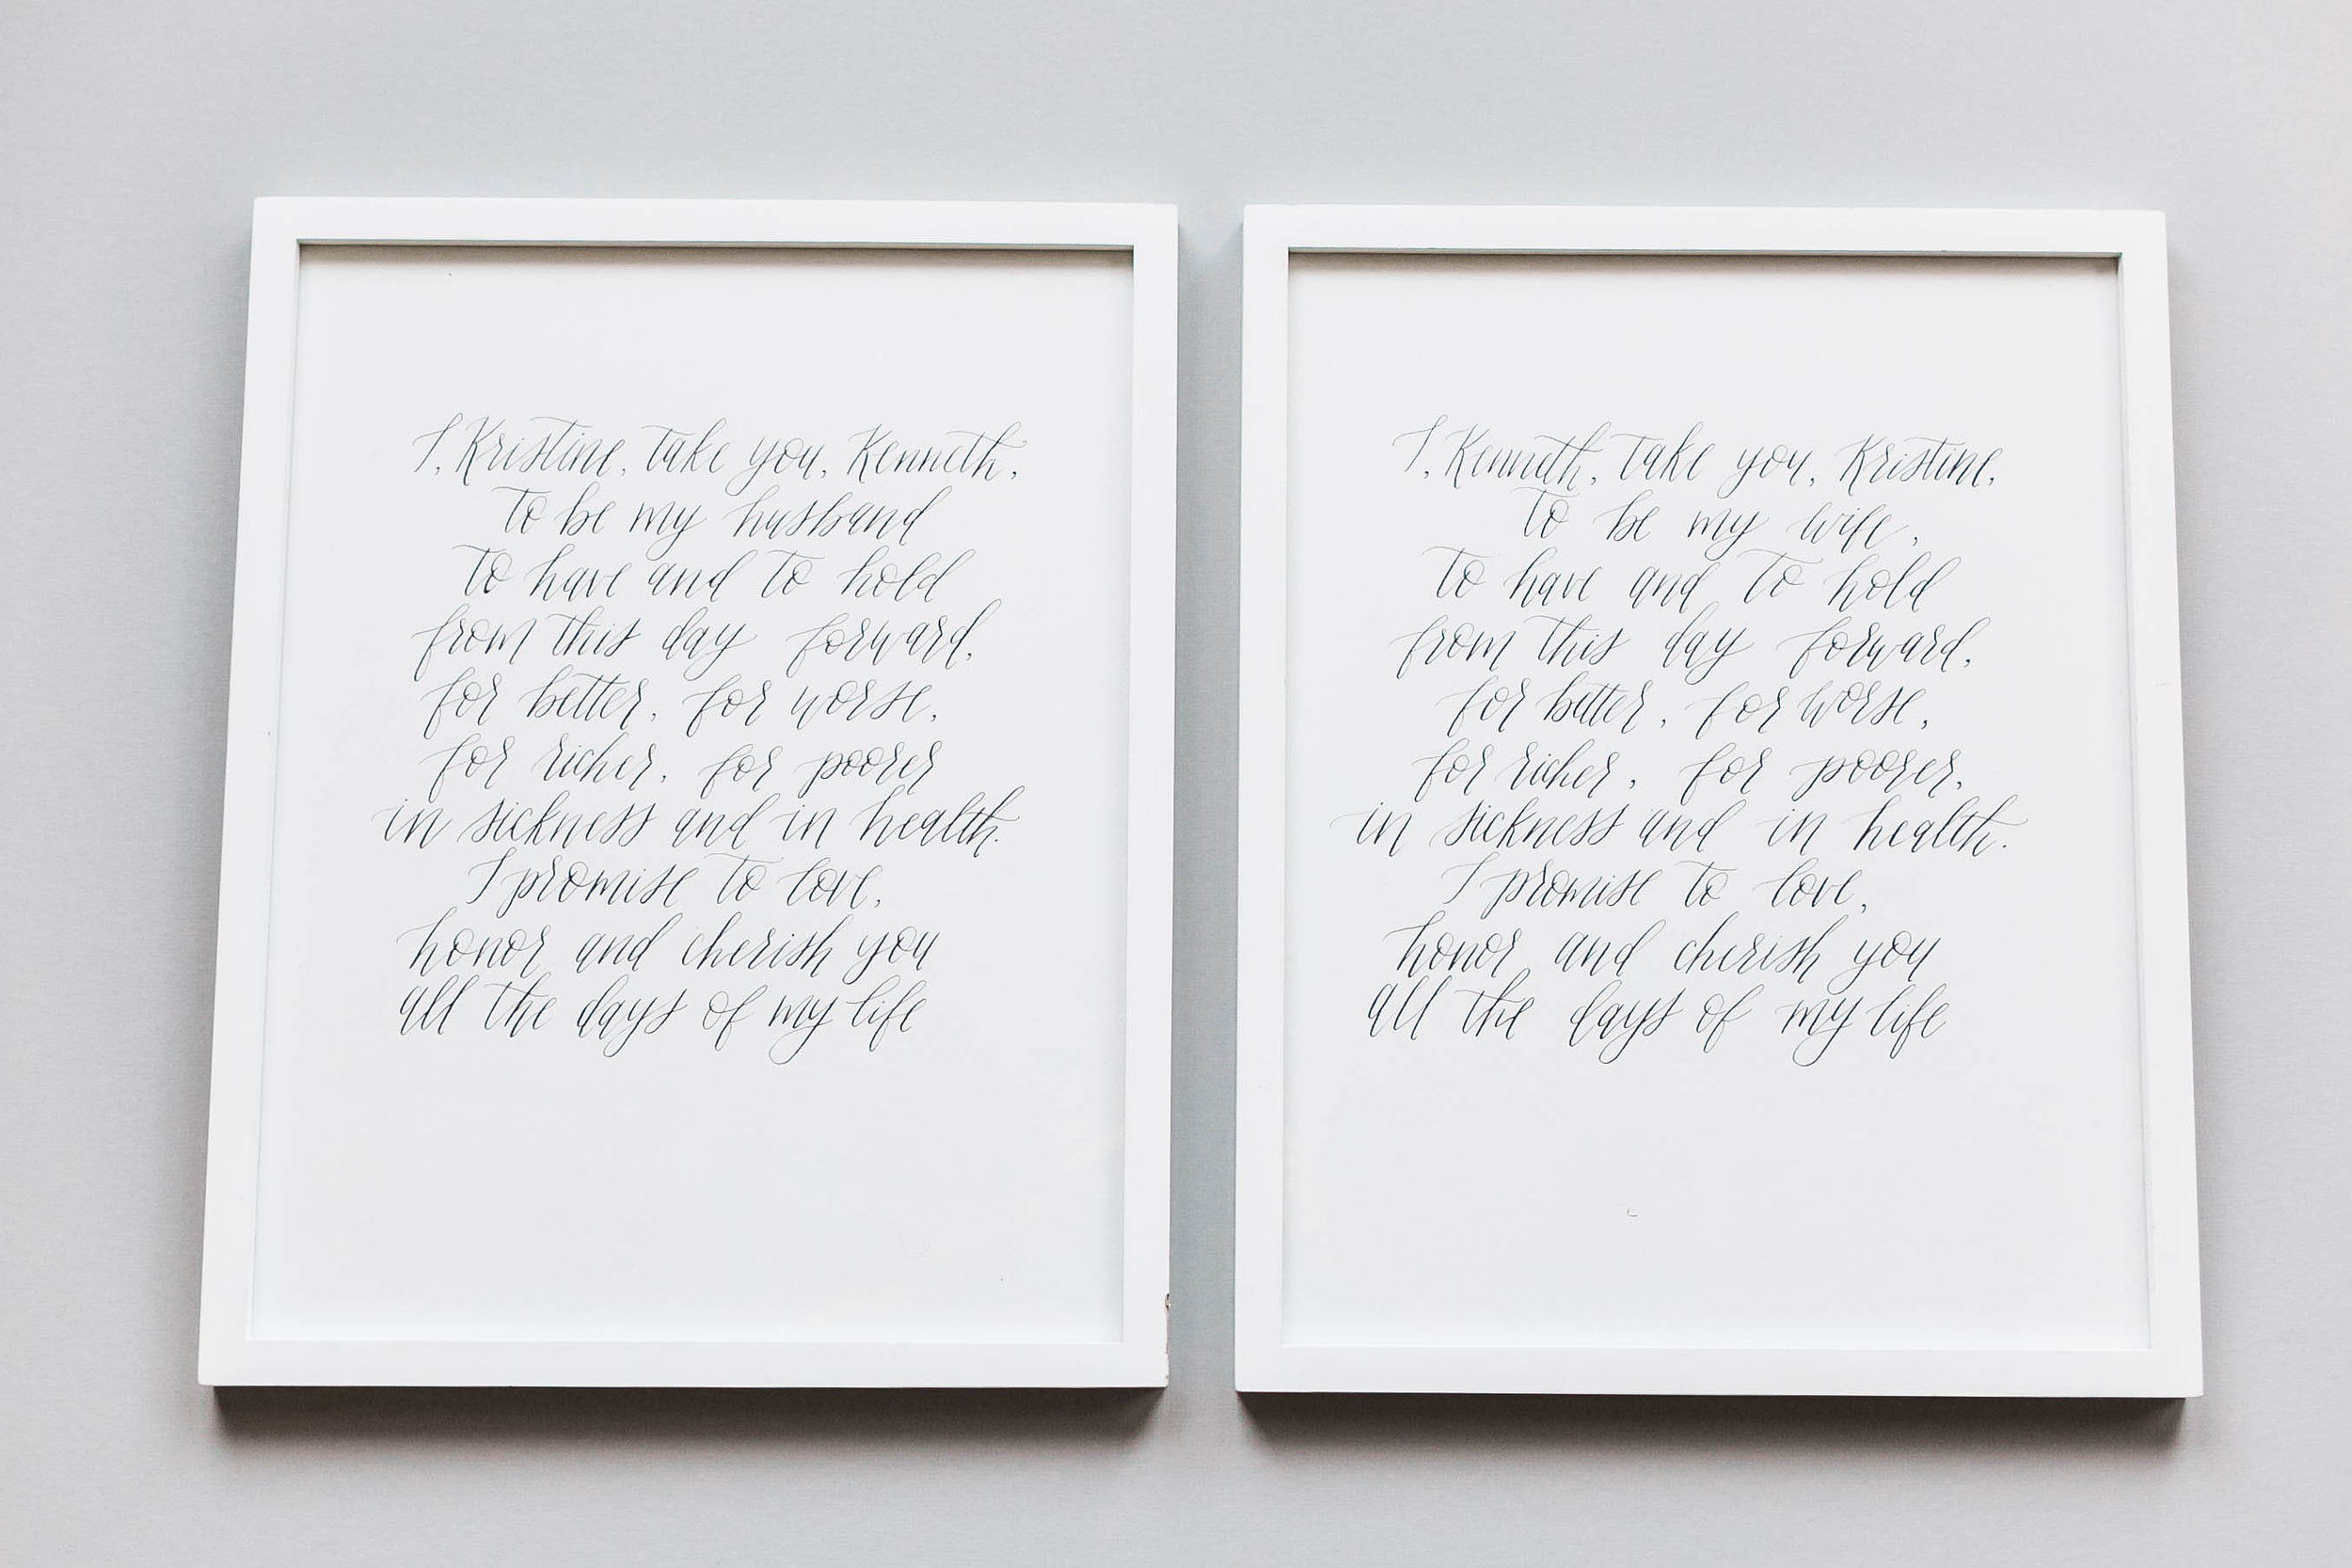 I, Kristine, take you, Kenneth,
to be my husband
to have and to hold
from this day forward,
for better, for worse,
for richer, for poorer
in sickness and in health.
I promise to love,
honor and cherish you
all the days of my life
I, Kenneth, take you, Kristine,
to be my wife,
to have and to hold
from this day forward,
for better, for worse,
for richer, for poorer,
in sickness and in health.
I promise to love,
honor and cherish you
all the days of my life